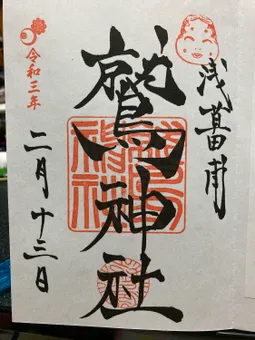 浅草田甫
鷲神社
令和三年
二月十三日